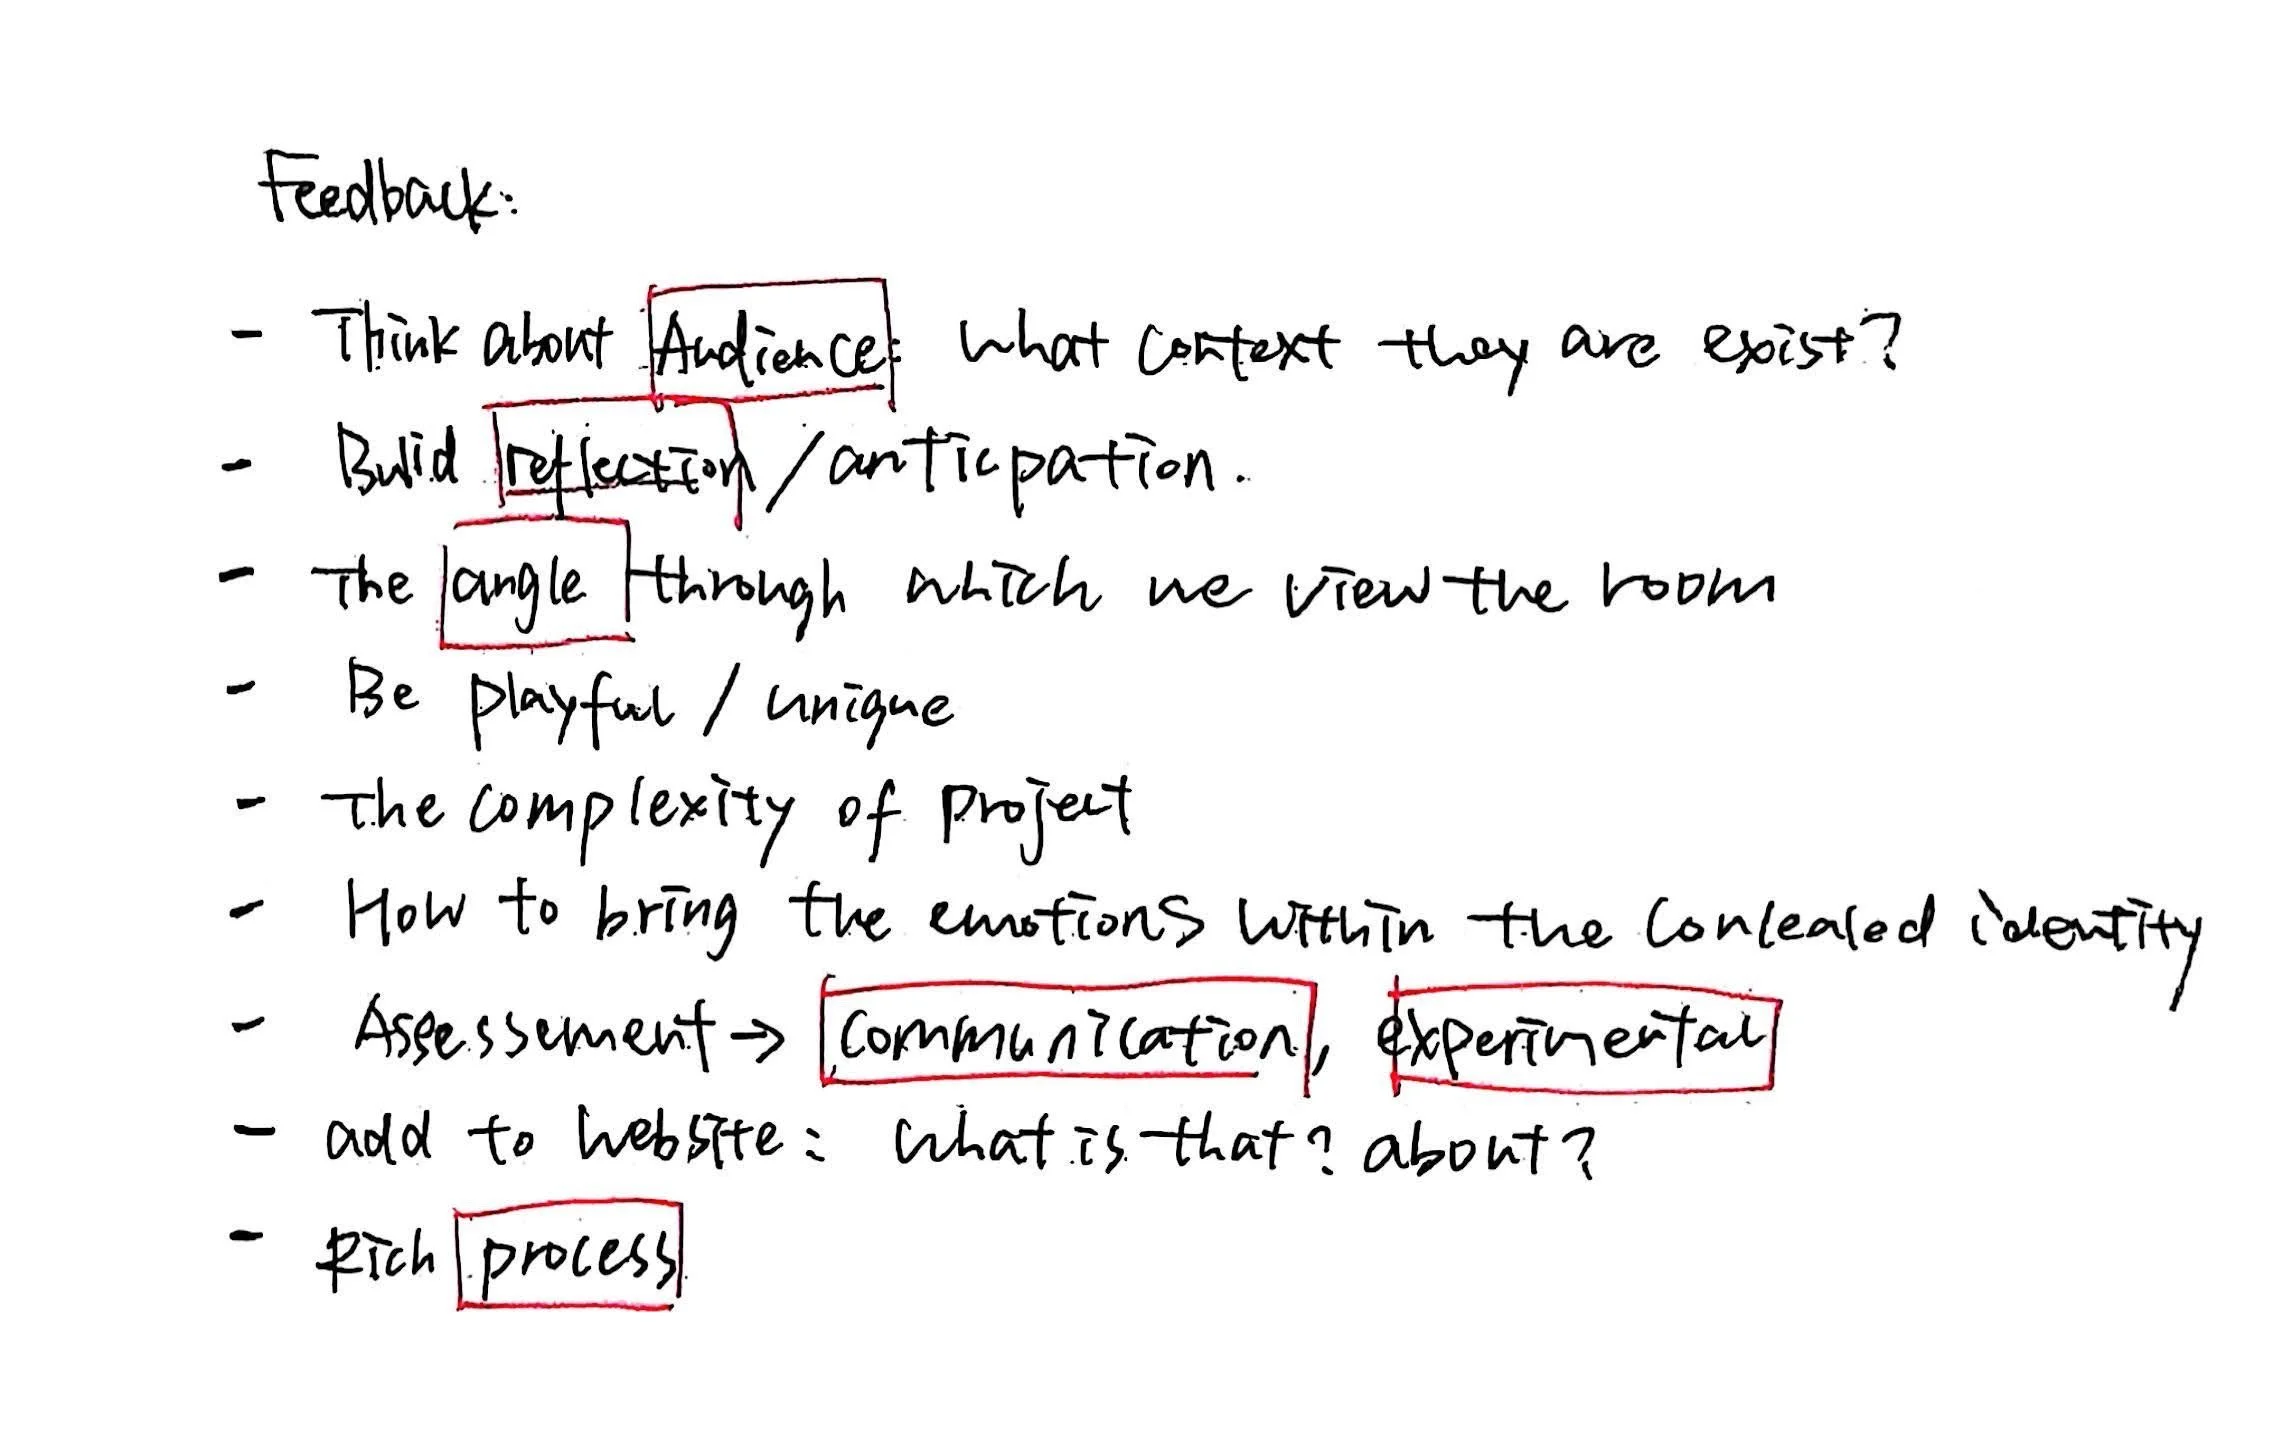 Feedback:
- Think about Audience: what context they are exist?
- Build reflection / anticpation.
- The angle through which we view the room
- Be playful / unique
- The complexity of project
- How to bring the emotions within the concealed identity
- Assessement → communication, experimental
- add to website: what is that? about?
- Rich process